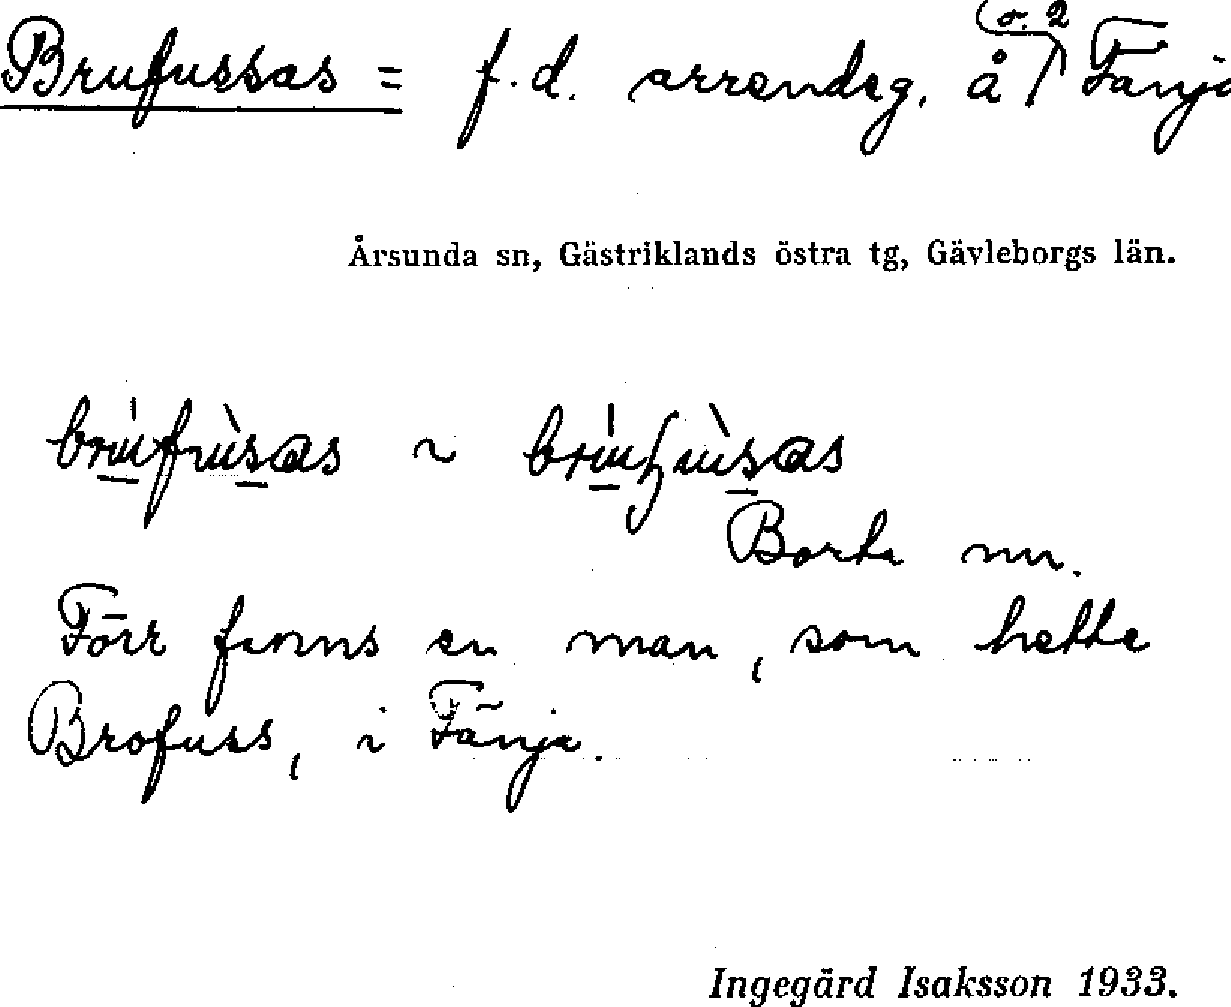 o. 2
Brufussas = f.d. arrendeg. å Fänja
Årsunda sn, Gästriklands östra tg, Gävleborgs län.
Borta nu.
Förr fanns en man, som hette
Brofuss, i Fänja.
Ingegärd Isaksson 1933.